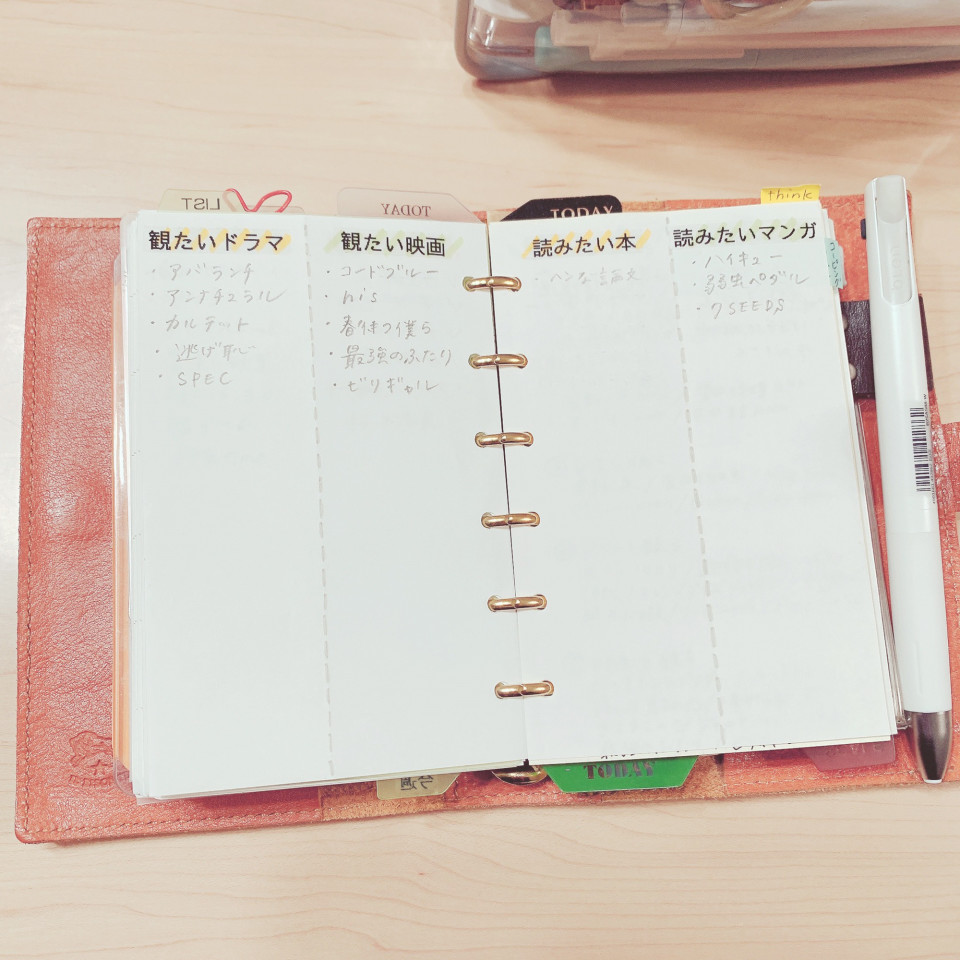 LIST
TODAY
TODAY
think
観たいドラマ
・アバランチ
・アンナチュラル
・カルテット
・逃げ恥
・SPEC
観たい映画
・コードブルー
・his
・春待つ僕ら
・最強のふたり
・ビリギャル
読みたい本
・ヘンな論文
読みたいマンガ
・ハイキュー
・弱虫ペダル
・7SEEDS
コーピング
今週
TODAY